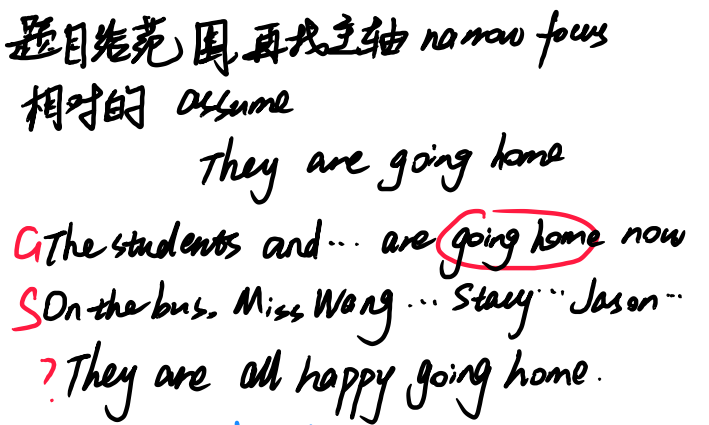 题目给范围,再找主轴 narrow focus
相对的 assume
They are going home
G The students and... are going home now
S On the bus, Miss Wang... Stacy... Jason...
? They are all happy going home.